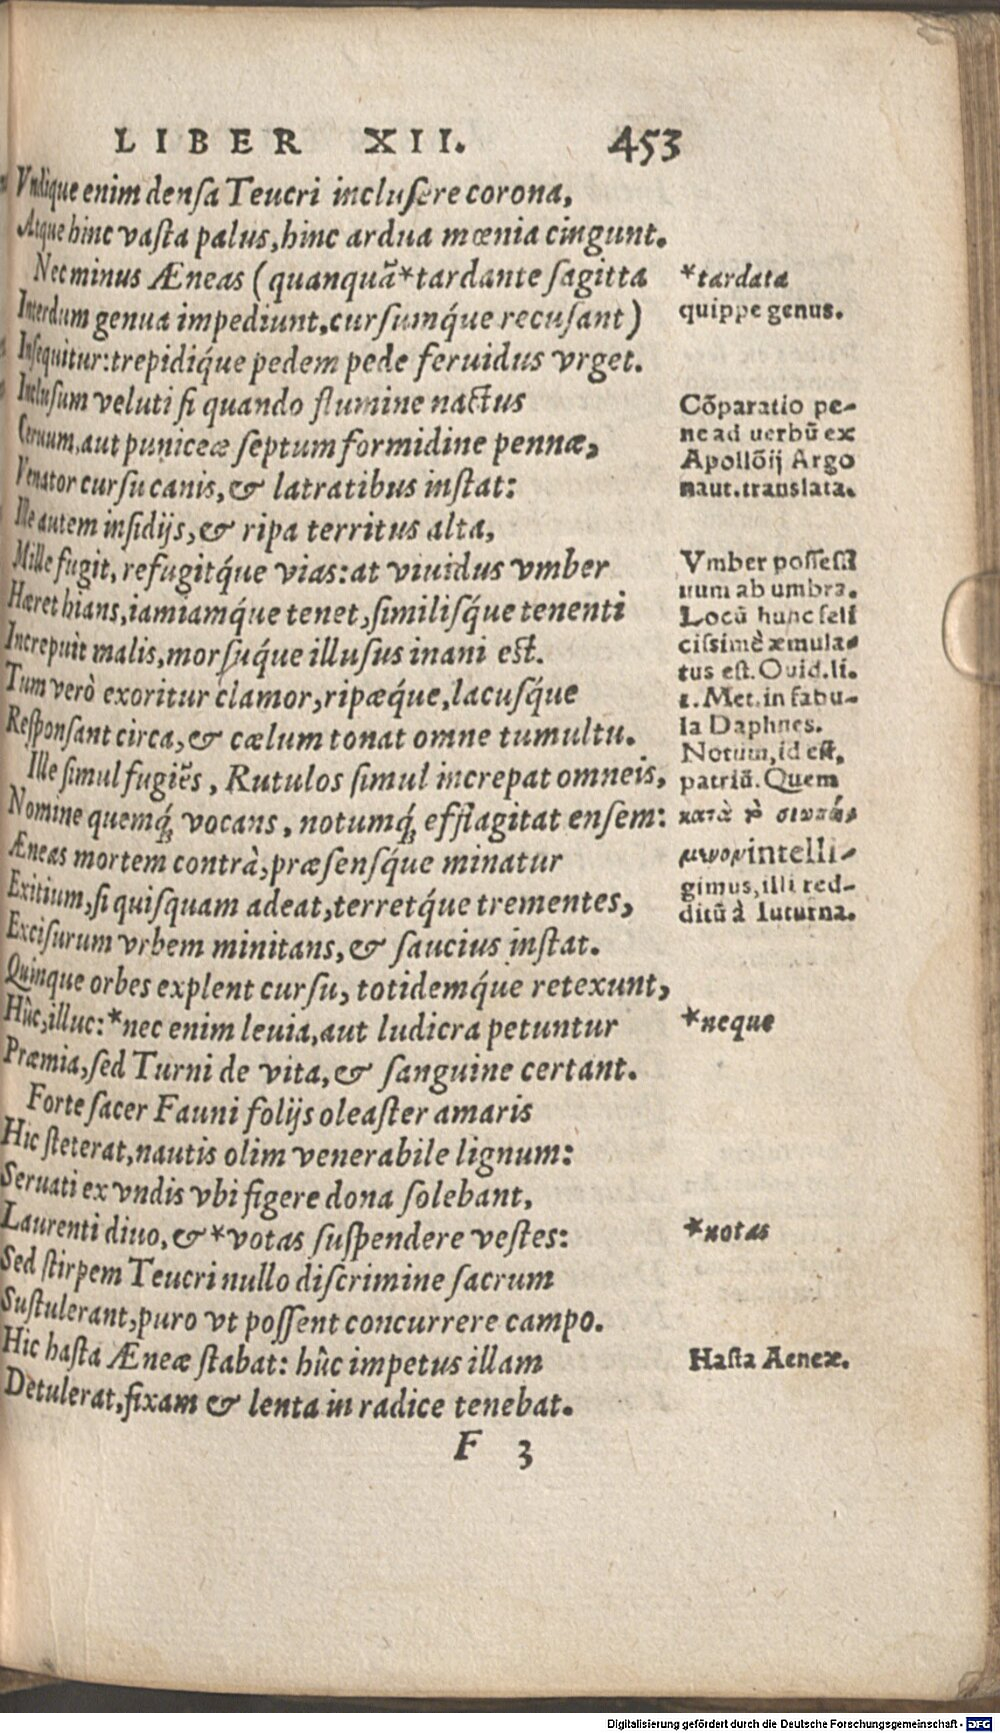 LIBER XII. 453
Vndique enim densa Teucri inclusere corona,
Atque hinc vasta palus, hinc ardua mœnia cingunt.
Nec minus Æneas (quanquã *tardante sagitta
Interdum genua impediunt, cursumq́ue recusant)
Insequitur: trepidiq́ue pedem pede feruidus vrget.
Inclusum veluti si quando flumine nactus
Ceruum, aut puniceæ septum formidine pennæ,
Venator cursu canis, & latratibus instat:
Ille autem insidijs, & ripa territus alta,
Mille fugit, refugitq́ue vias: at viuidus vmber
Hæret hians, iamiamq́ue tenet, similisq́ue tenenti
Increpuit malis, morsuq́ue illusus inani est.
Tum verò exoritur clamor, ripæq́ue, lacusq́ue
Responsant circa, & cælum tonat omne tumultu.
Ille simul fugiẽs, Rutulos simul increpat omneis,
Nomine quemq́; vocans, notumq́; efflagitat ensem:
Æneas mortem contrà, præsensq́ue minatur
Exitium, si quisquam adeat, terretq́ue trementes,
Excisurum vrbem minitans, & saucius instat.
Quinque orbes explent cursu, totidemq́ue retexunt,
Hûc, illuc: *nec enim leuia, aut ludicra petuntur
Præmia, sed Turni de vita, & sanguine certant.
Forte sacer Fauni folijs oleaster amaris
Hic steterat, nautis olim venerabile lignum:
Seruati ex vndis vbi figere dona solebant,
Laurenti diuo, & *votas suspendere vestes:
Sed stirpem Teucri nullo discrimine sacrum
Sustulerant, puro vt possent concurrere campo.
Hic hasta Æneæ stabat: hûc impetus illam
Detulerat, fixam & lenta in radice tenebat.
F 3
*tardata
quippe genus.
Cõparatio pe-
ne ad uerbũ ex
Apollõij Argo
naut. translata.
Vmber possessi
uum ab umbra.
Locũ hunc feli
cissimè æmula-
tus est. Ouid. li.
1. Met. in fabu-
la Daphnes.
Notum, id est,
patriũ. Quem
κατὰ τὸ
intelli-
gimus, illi red-
ditũ à Iuturna.
*neque
*notas
Hasta Aeneæ.
Digitalisierung gefördert durch die Deutsche Forschungsgemeinschaft - DFG